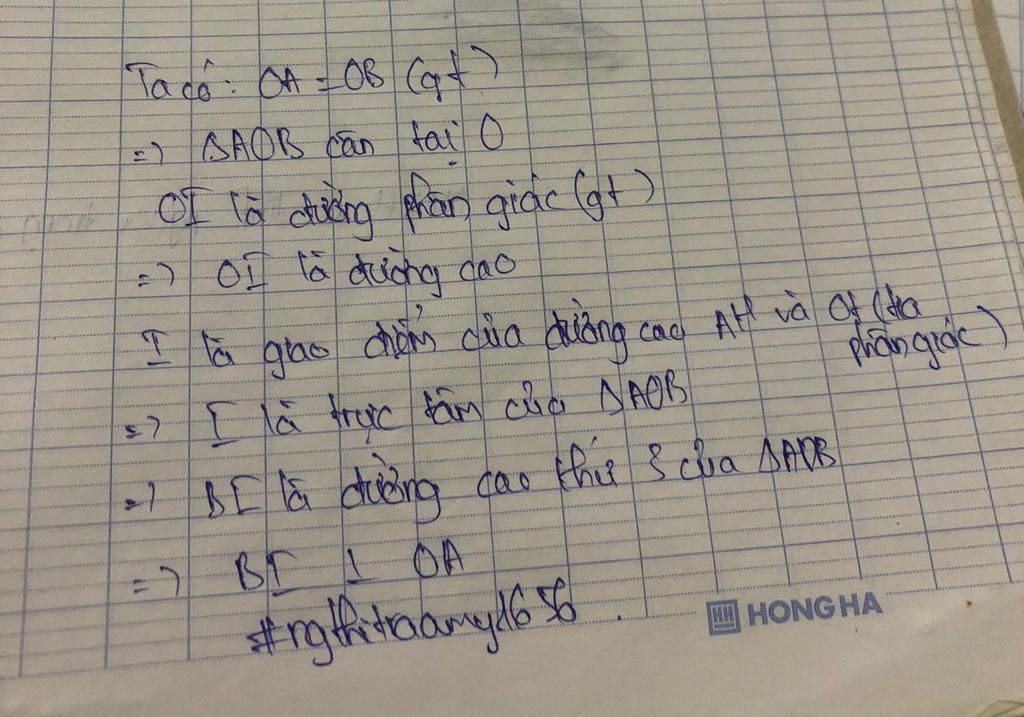 Ta có: OA = OB (gt)
=> ΔAOB cân tại O
OI là đường phân giác (gt)
=> OI là đường cao
I là giao điểm của đường cao AH và Ot (tia
phân giác)
=> I là trực tâm của ΔAOB
=> BI là đường cao thứ 3 của ΔAOB
=> BI ⊥ OA
#ngthitraamy1656.
HH HONG HA